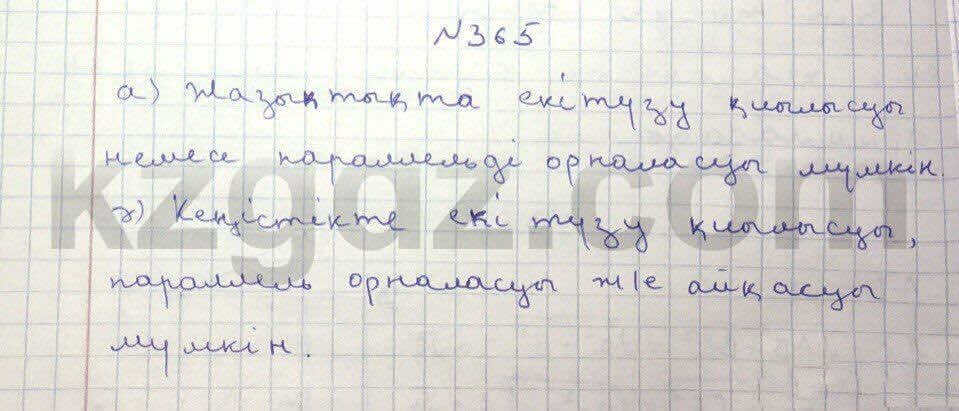 №365
а) Жазықтықта екі түзу қиылысуы
немесе параллельді орналасуы мүмкін.
ә) Кеңістікте екі түзу қиылысуы,
параллель орналасуы ж/е айқасуы
мүмкін.
kzgdz.com